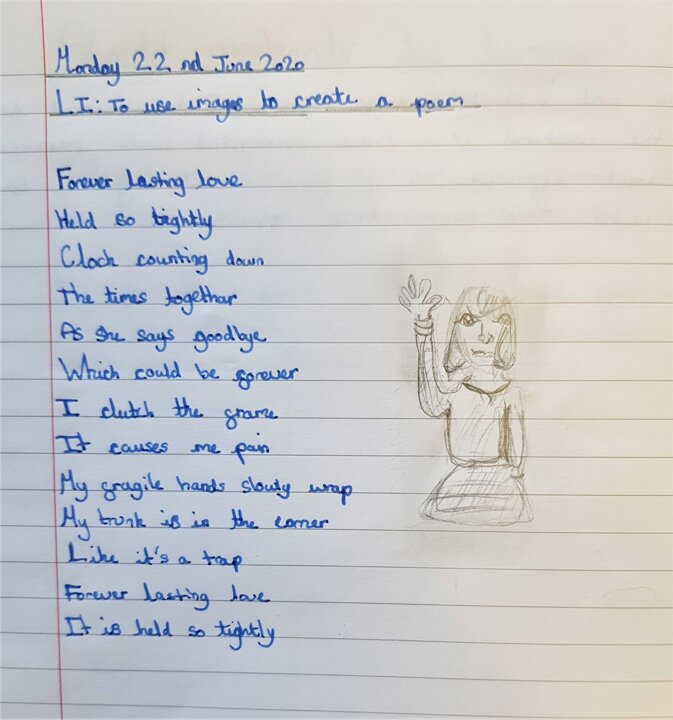 Monday 22nd June 2020
LI: To use images to create a poem
Forever lasting love
Held so tightly
Clock counting down
The times together
As she says goodbye
Which could be forever
I clutch the frame
It causes me pain
My fragile hands slowly wrap
My trunk is in the corner
Like it's a trap
Forever lasting love
It is held so tightly